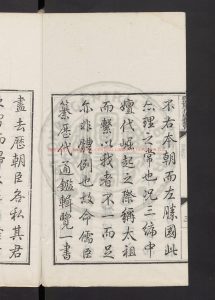 不右本朝而左勝國此
亦理之常也況三編中
嬗代崛起之際稱太祖
而繫以我者不一而足
亦非體例也故命儒臣
纂歷代通鑑輯覽一書
盡去歷朝臣各私其君